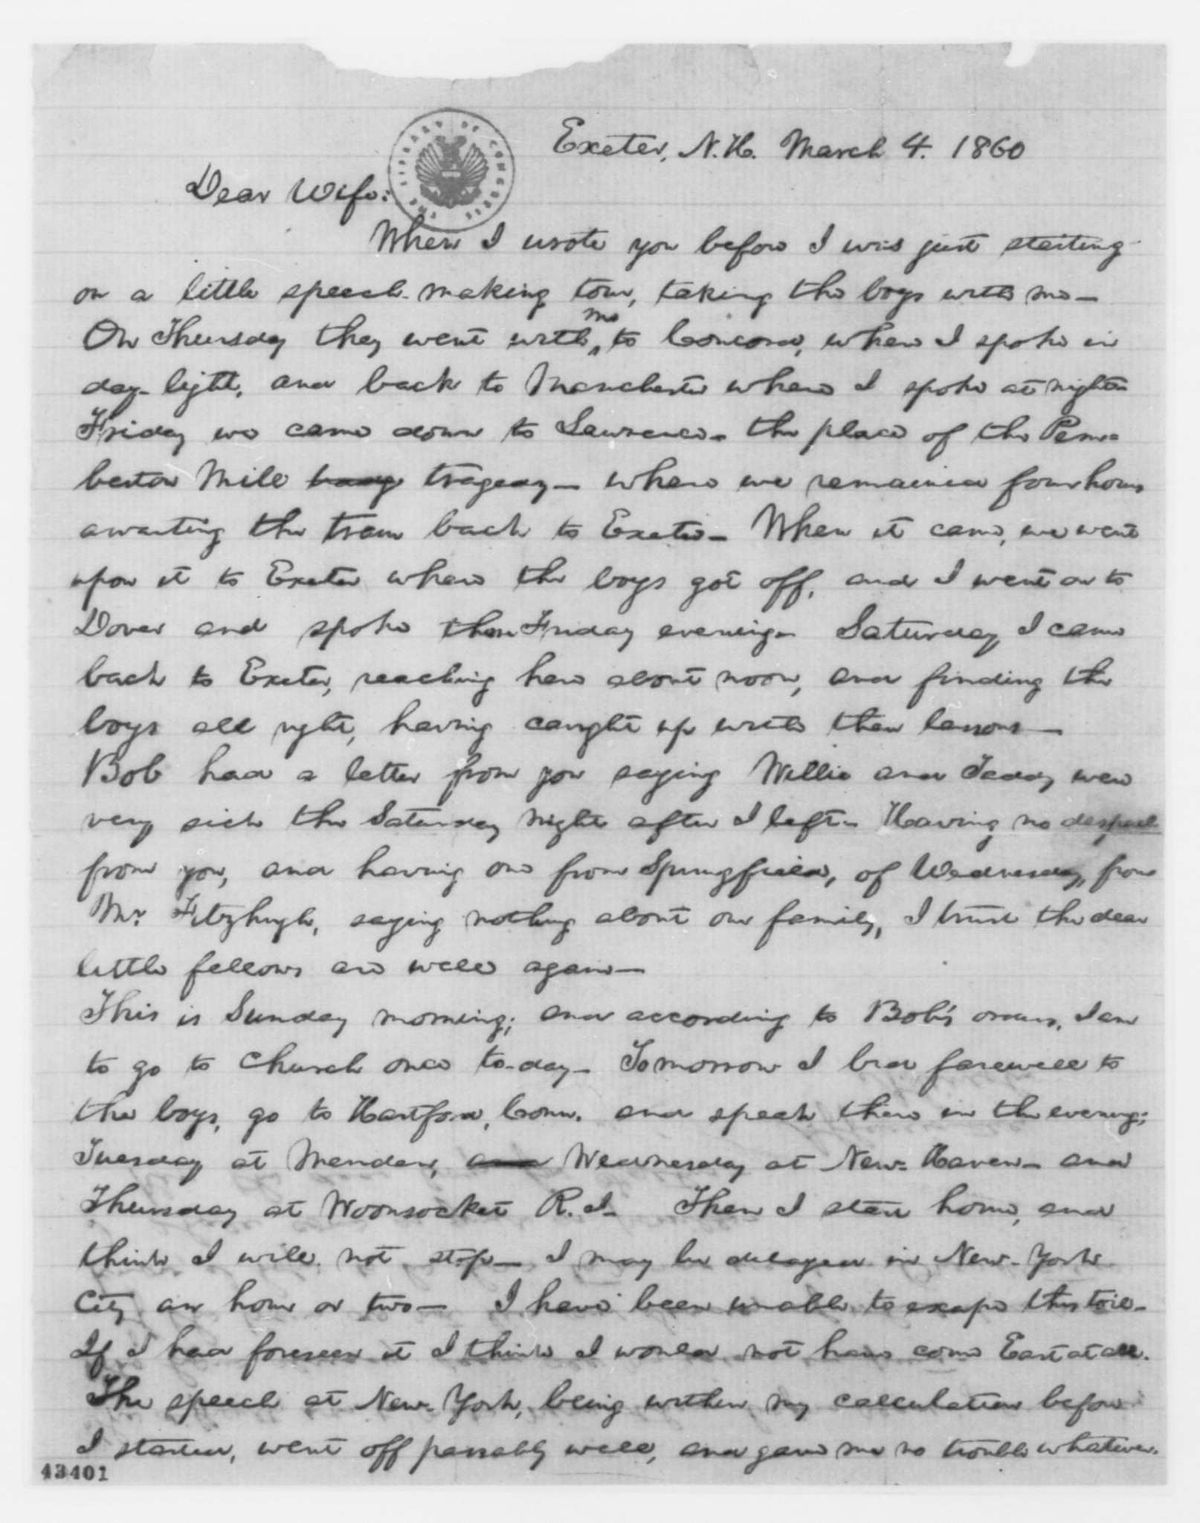 Exeter, N.H. March 4. 1860
THE LIBRARY OF CONGRESS
Dear Wife:
When I wrote you before I was just starting
on a little speech-making tour, taking the boys with me—
On Thursday they went with me to Concord, where I spoke in
day-light, and back to Manchester where I spoke at night—
Friday we came down to Lawrence— the place of the Pem-
berton Mill tragedy— where we remained four hours
awaiting the train back to Exeter— When it came, we went
upon it to Exeter where the boys got off, and I went on to
Dover and spoke there Friday evening— Saturday I came
back to Exeter, reaching here about noon, and finding the
boys all right, having caught up with their lessons—
Bob had a letter from you saying Willie and Taddy were
very sick the Saturday night after I left— Having no despatch
from you, and having one from Springfield, of Wednesday, from
Mr. Fitzhugh, saying nothing about our family, I trust the dear
little fellows are well again—
This is Sunday morning; and according to Bob's orders, I am
to go to church once to-day— Tomorrow I bid farewell to
the boys, go to Hartford, Conn. and speak there in the evening;
Tuesday at Meriden, and Wednesday at New-Haven— and
Thursday at Woonsocket R.I— Then I start home, and
think I will not stop— I may be delayed in New-York
City an hour or two— I have been unable to escape this toil—
If I had foreseen it I think I would not have come East at all.
The speech at New-York, being within my calculation before
I started, went off passably well, and gave me no trouble whatever.
43401